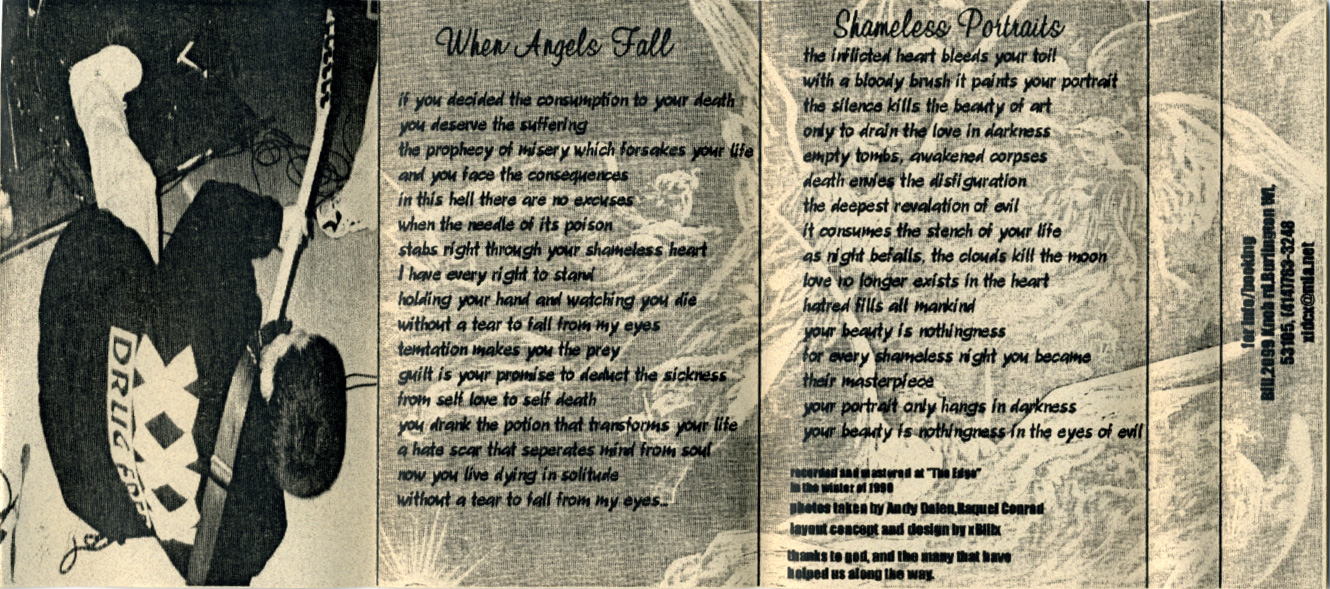 DRUG FREE
When Angels Fall
if you decided the consumption to your death
you deserve the suffering
the prophecy of misery which forsakes your life
and you face the consequences
in this hell there are no excuses
when the needle of its poison
stabs right through your shameless heart
I have every right to stand
holding your hand and watching you die
without a tear to fall from my eyes
temtation makes you the prey
guilt is your promise to deduct the sickness
from self love to self death
you drank the potion that transforms your life
a hate scar that seperates mind from soul
now you live dying in solitude
without a tear to fall from my eyes...
Shameless Portraits
the inflicted heart bleeds your toil
with a bloody brush it paints your portrait
the silence kills the beauty of art
only to drain the love in darkness
empty tombs, awakened corpses
death envies the disfiguration
the deepest revalation of evil
it consumes the stench of your life
as night befalls, the clouds kill the moon
love no longer exists in the heart
hatred fills all mankind
your beauty is nothingness
for every shameless night you became
their masterpiece
your portrait only hangs in darkness
your beauty is nothingness in the eyes of evil
recorded and mastered at "The Edge"
in the winter of
photos taken by Andy Dalen,Raquel Conrad
layout concept and design by xBillx
thanks to god, and the many that have
helped us along the way.
for info/booking
Bill,2099 Knob rd,Burlington WI,
53105, (414)763-3248
xidcx@mia.net